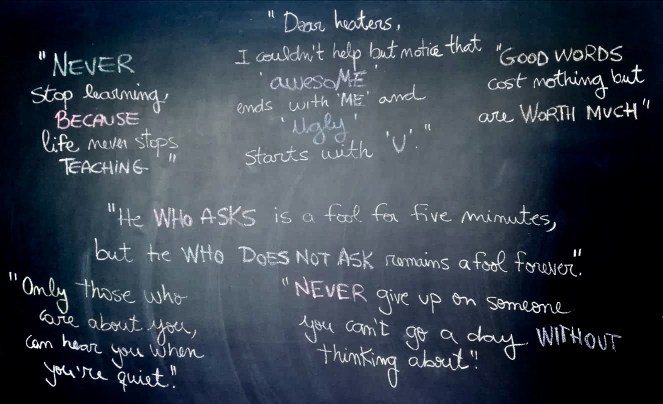 "NEVER
stop learning,
BECAUSE
life never stops
TEACHING"
"Dear heaters,
I couldn't help but notice that
'awesoME'
ends with 'ME' and
'Ugly'
starts with 'U'."
"GOOD WORDS
cost nothing but
are WORTH MUCH"
"He WHO ASKS is a fool for five minutes,
but he WHO DOES NOT ASK remains a fool forever".
"Only those who
care about you,
can hear you when
you're quiet."
"NEVER give up on someone
you can't go a day WITHOUT
thinking about"!